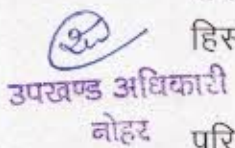 हिस
उपखण्ड अधिकारी
नोहर
परि